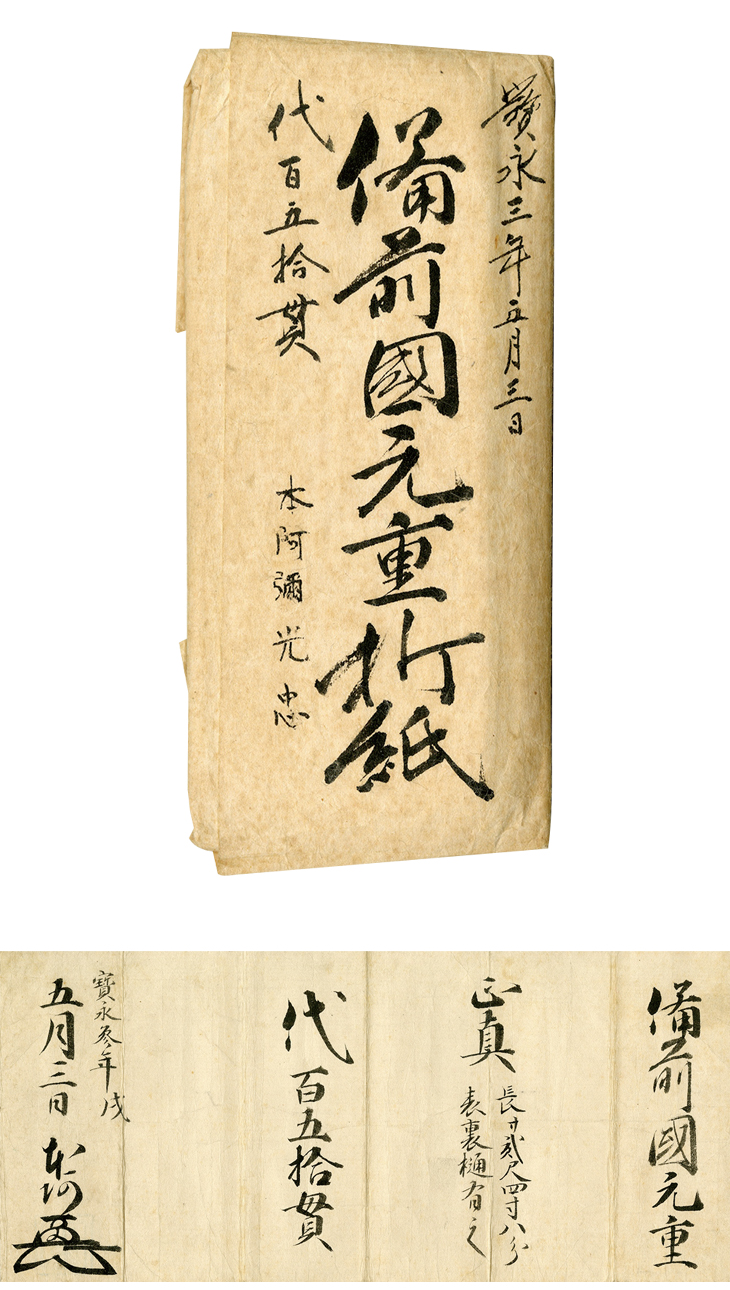 寶永三年五月三日
備前國元重折紙
代百五拾貫
本阿彌光忠
備前國元重
正真
長サ貳尺四寸八分
表裏樋有之
代百五拾貫
寶永参年戌
五月三日
本阿